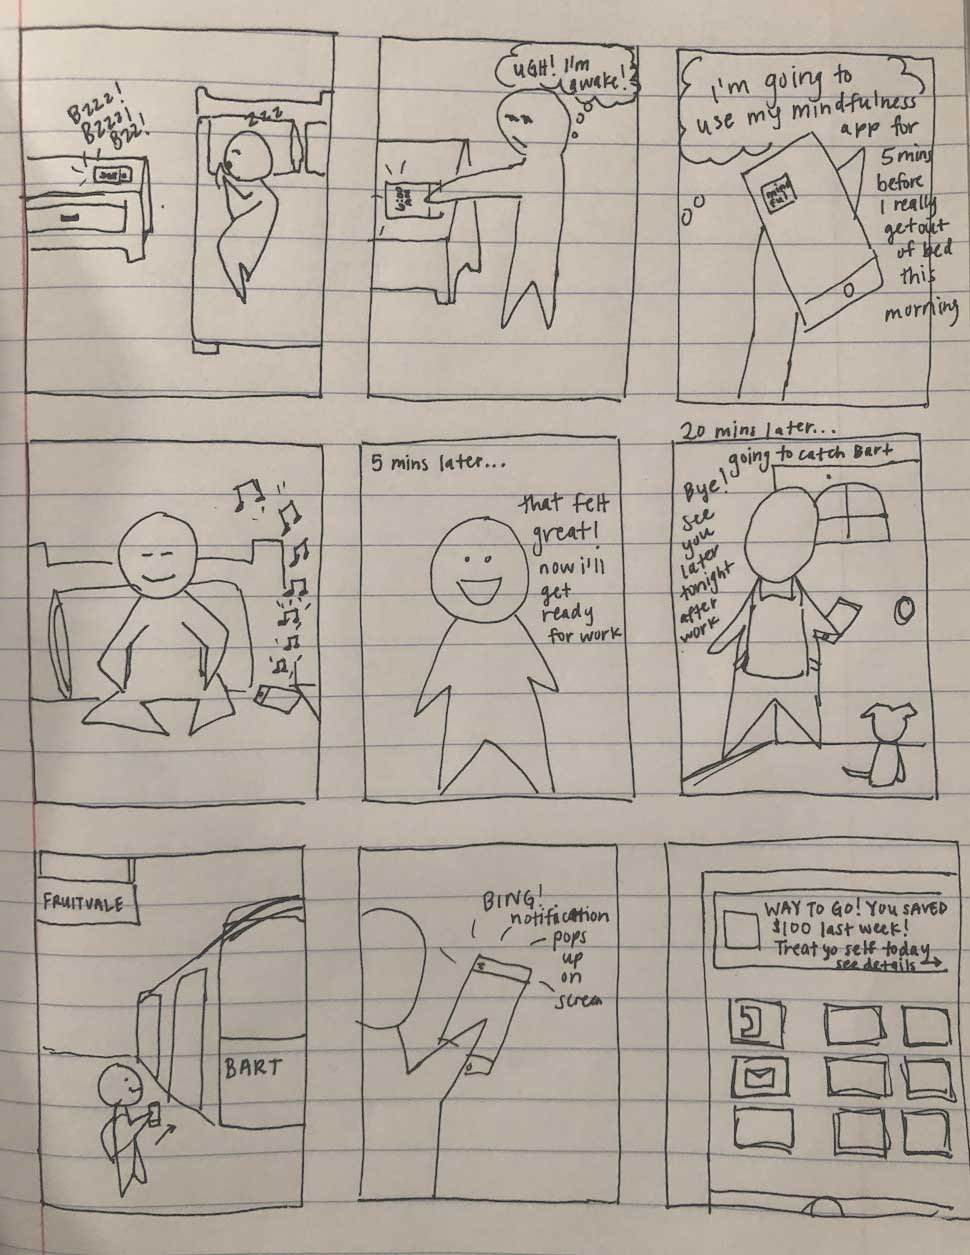 Bzzz!
Bzzz!
Bzz!
zzz
UGH! I'm
awake!
I'm going to
use my mindfulness
app for
5 mins
before
I really
get out
of bed
this
morning
mind
ful
5 mins later...
that felt
great!
now i'll
get
ready
for work
20 mins later...
going to catch Bart
Bye!
see
you
later
tonight
after
work
FRUITVALE
BART
BING!
notification
pops
up
on
screen
WAY TO GO! YOU SAVED
$100 last week!
Treat yo self today
see details →